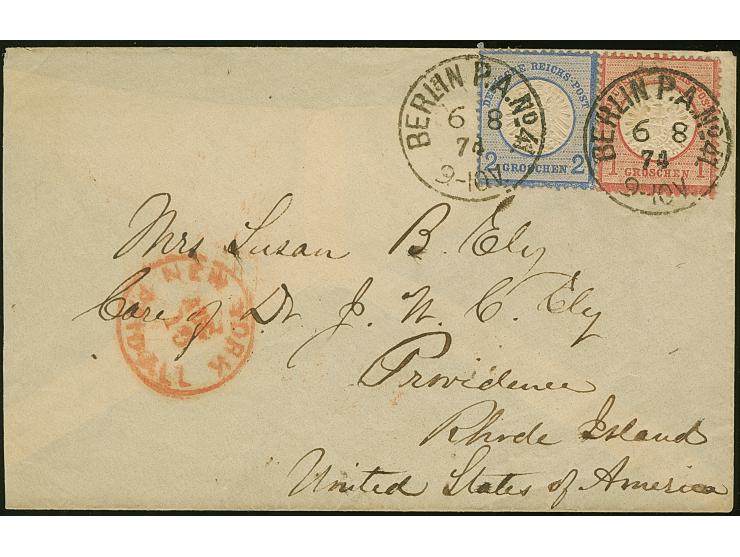 BERLIN P.A. No. 41.
6 8
74
9-10V.
DEUTSCHE REICHS-POST
2 GROSCHEN 2
BERLIN P.A. No. 41.
6 8
74
9-10V.
POST
1 GROSCHEN 1
Mrs Susan B. Ely
Care of Dr. J. W. C. Ely
Providence
Rhode Island
United States of America
NEW YORK
PAID ALL